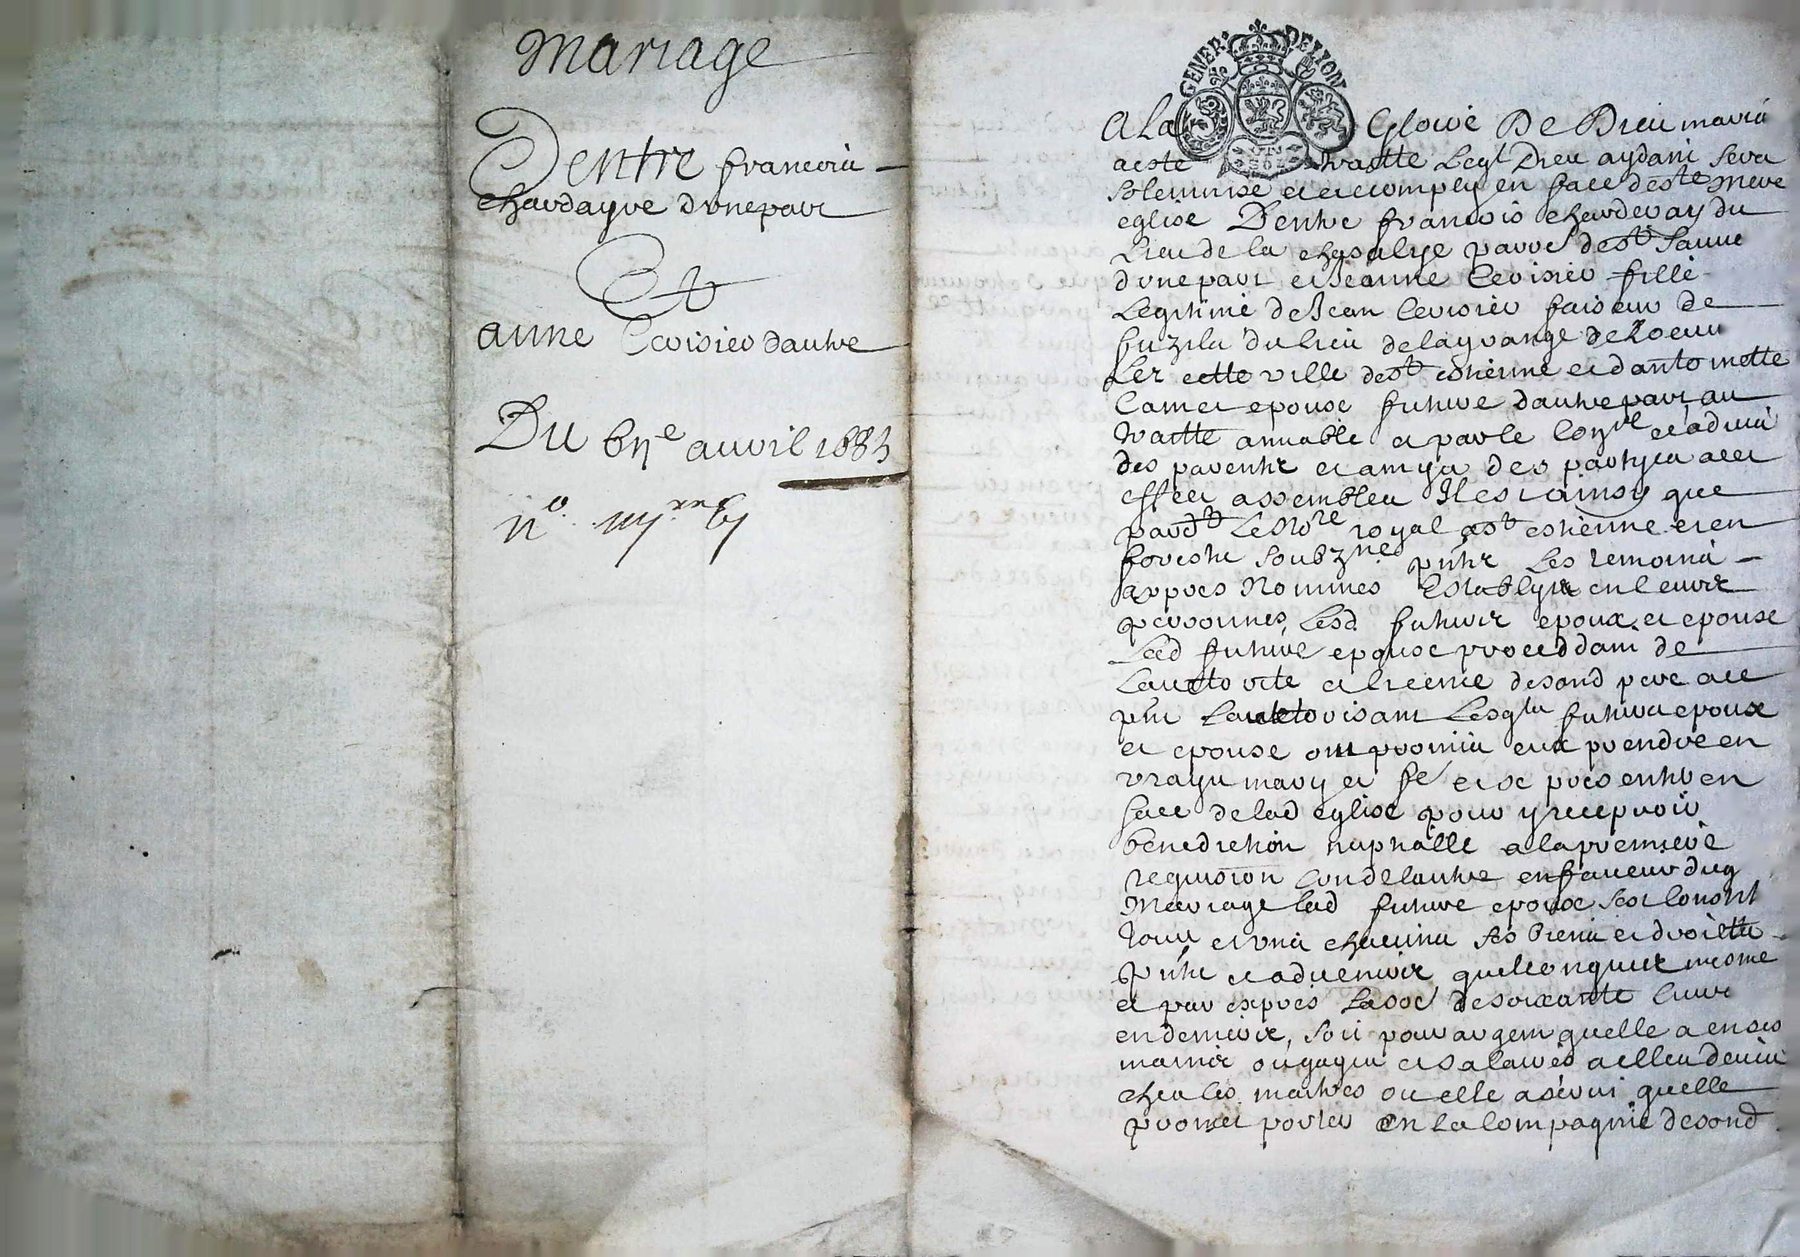 Mariage
Dentre francois
chardayre dune part
Et
anne Croisier dautre
Du avril 1683
n°
GENER. DE LYON
A La Gloire De Dieu mariage
a este traitte Leql Dieu aydant sera
solemnise et accomply en face de ste mere
eglise Dentre francois chardeyay du
Lieu de la paroe de st
dune part et Jeanne Croisier fille
Legitime de Jean Croisier faiseur de
fuzils du lieu de la grange de Loeuu
Lez cette ville de st estienne et dantoinette
epouse future dautre part au
traitte amiable et par le et aduis
des parents et amys des partyes a cet
effect assembles Il est ainsy que
pardt Le Nore royal a st estienne et en
forests soubzne pnts Les temoins
appres Nommes Establys en leurs
personnes Lesd futurs epoux et epouse
Lad future epouse proceddant de
Lauctorite et licence de sond pere a ce
pnt Lauctorisant Lesqls futurs epoux
et epouse ont promis eux prendre en
vrays mary et fe et se presenter en
face de lad eglise pour y recepvoir
benediction nuptialle a la premiere
requision lun de lautre en faveur duq
Mariage lad future epouse sest constt
tous et uns chacuns ses biens et droitts
pnts et aduenirs quelconques mesme
et par expres La soe de soixante liures
en deniers, soit pour argent quelle a en ses
mains ou gages et salaires a elle deus
ches les maitres ou elle a servi quelle
promet porter en la compagnie de sond